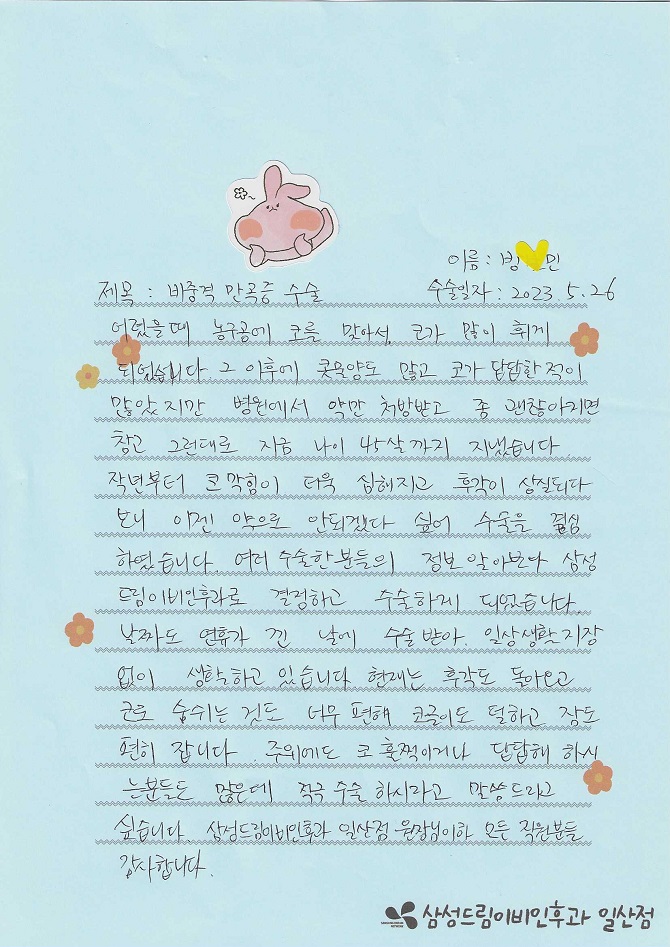 이름 : 빙 민
제목 : 비중격 만곡증 수술 수술일자 : 2023. 5. 26
어렸을때 농구공에 코를 맞아서, 코가 많이 휘게
되었습니다 그 이후에 콧물양도 많고 코가 답답한적이
많았지만 병원에서 약만 처방받고 좀 괜찮아지면
참고 그런대로 지금 나이 45살까지 지냈습니다.
작년부터 코막힘이 더욱 심해지고 후각이 상실되다
보니 이젠 약으로 안되겠다 싶어 수술을 결심
하였습니다. 여러 수술한분들의 정보 알아보다 삼성
드림이비인후과로 결정하고 수술하게 되었습니다.
날짜도 연휴가 낀 날에 수술받아. 일상생활지장
없이 생활하고 있습니다 현재는 후각도 돌아오고
코로 숨쉬는 것도 너무 편해 코골이도 덜하고 잠도
편히 잡니다 주위에도 코 훌쩍이거나 답답해 하시
는분들도 많은데 적극 수술 하시라고 말씀드리고
싶습니다. 삼성드림이비인후과 일산점 원장님이하 모든 직원분들
감사합니다.
삼성드림이비인후과 일산점